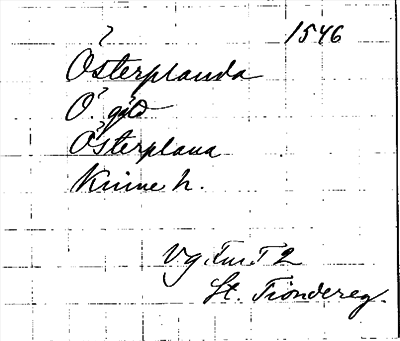 ? 1546
Österplanda
Ö. gäld
Österplana
Kinne h.
Vg Fur T 2
St. Tiondereg.